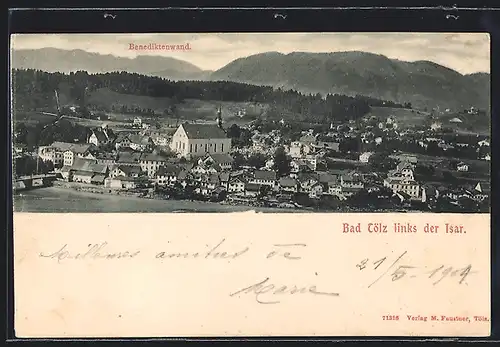 Benediktenwand.
Bad Tölz links der Isar.
Milles amitiés de
Marie
21/5 - 1904
11318 Verlag M. Faustner, Tölz.